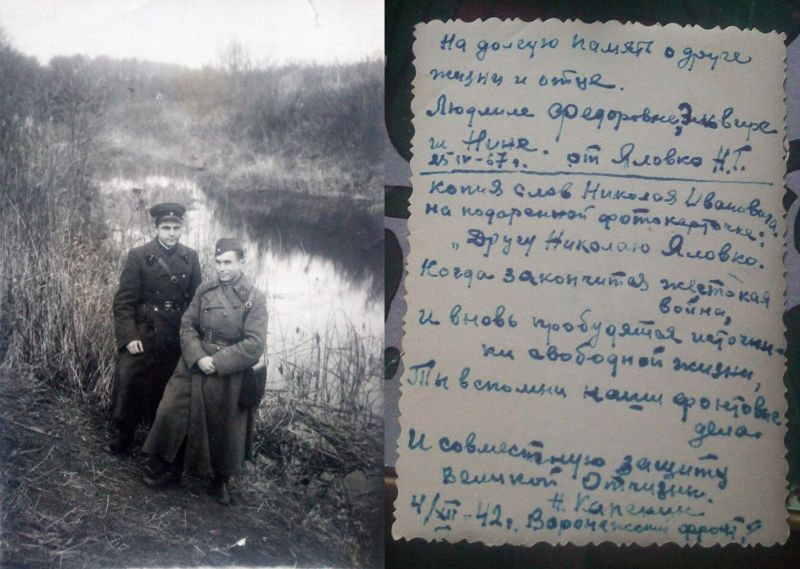 На долгую память о друге
жизни и отце.
Людмиле Федоровне, Эльвире
и Нине. от Яловко Н.Г.
25 IV-67 г.
Копия слов Николая Ивановича
на подаренной фотокарточке:
„Другу Николаю Яловко.
Когда закончится жестокая
война,
И вновь пробудятся источни-
ки свободной жизни,
Ты вспомни наши фронтовые
дела
И совместную защиту
Великой Отчизны.
Н.
4/XII-42 г. Воронежский фронт."